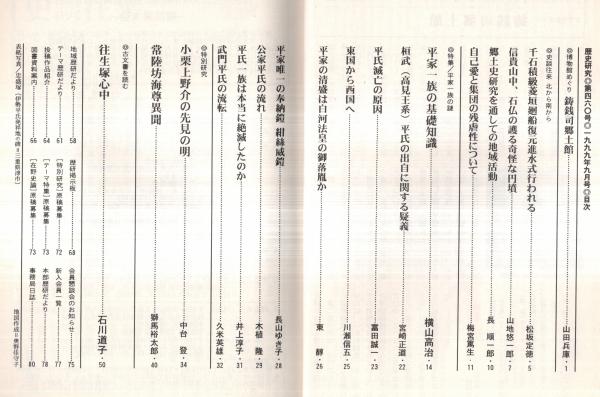 歴史研究◎第四六〇号◎一九九九年九月号◎目次
◎博物館めぐり 鋳銭司郷土館……山田兵庫・1
◎史談往来 北から南から
千石積級菱垣廻船復元進水式行われる……松坂定徳・5
信貴山中、石仏の護る奇怪な円墳……山地悠一郎・7
郷土史研究を通しての地域活動……長 順一郎・10
自己愛と集団の残虐性について……梅宮篤生・11
◎特集/平家一族の謎
平家一族の基礎知識……横山高治・14
桓武(高見王系)平氏の出自に関する疑義……宮崎正道・22
平氏滅亡の原因……富田誠一・23
東国から西国へ……川瀬信五・25
平家の清盛は白河法皇の御落胤か……東 醇・26
平家唯一の奉納鎧 紺絲威鎧……長山ゆき子・28
公家平氏の流れ……木植 隆・29
平氏一族は本当に絶滅したのか……井上淳子・31
武門平氏の流転……久米英雄・32
◎特別研究
小栗上野介の先見の明……中台 登・34
常陸坊海尊異聞……獅馬裕太郎・40
◎古文書を読む
往生塚心中……石川道子・50
地域歴研だより……58
テーマ歴研だより……61
投稿作品紹介……64
図書資料案内……66
歴研掲示板……68
[特別研究]原稿募集……72
[テーマ特集]原稿募集……73
[在野史論]原稿募集……73
会員懇談会のお知らせ……75
新入会員一覧……77
本部歴研だより……78
事務局日誌……80
表紙写真/忠盛塚(伊勢平氏発祥地の碑=三重県津市)
地図作成=奥野佳守子